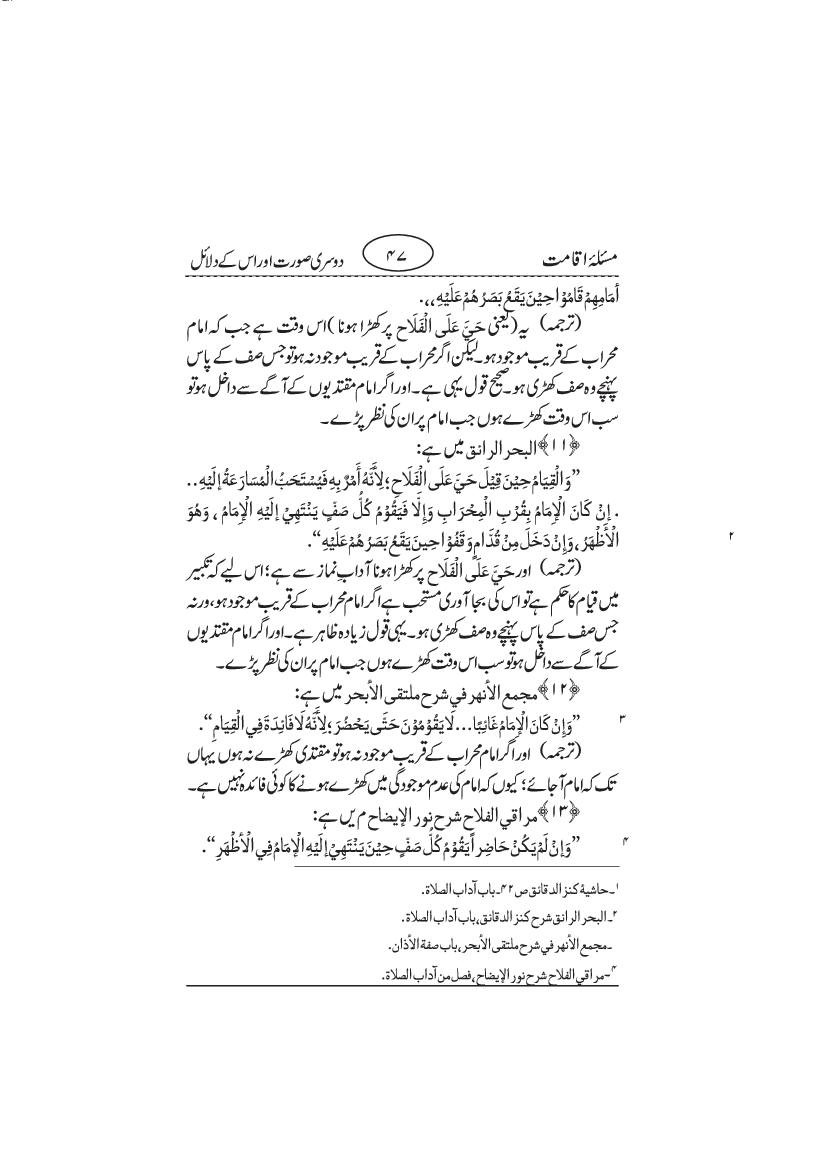 مسئلۂ اقامت ۴۷ دوسری صورت اور اس کے دلائل
أمَامِهِمْ قَامُوْا حِيْنَ يَقَعُ بَصَرُهُمْ عَلَيْهِ،،.
(ترجمہ) یہ (یعنی حَيَّ عَلَى الْفَلَاح پر کھڑا ہونا) اس وقت ہے جب کہ امام
محراب کے قریب موجود ہو۔ لیکن اگر محراب کے قریب موجود نہ ہو تو جس صف کے پاس
پہنچے وہ صف کھڑی ہو۔ صحیح قول یہی ہے۔ اور اگر امام مقتدیوں کے آگے سے داخل ہو تو
سب اس وقت کھڑے ہوں جب امام پر ان کی نظر پڑے۔
﴿۱۱﴾ البحر الرائق میں ہے:
”وَالْقِيَامُ حِيْنَ قِيْلَ حَيَّ عَلَى الْفَلَاحِ؛ لِأَنَّهُ أَمْرٌ بِهٖ فَيُسْتَحَبُّ الْمُسَارَعَةُ إلَيْهِ . .
. إنْ كَانَ الْإمَامُ بِقُرْبِ الْمِحْرَابِ وَإلَّا فَيَقُوْمُ كُلُّ صَفٍّ يَنْتَهِيْ إلَيْهِ الْإمَامُ ، وَهُوَ
الْأَظْهَرُ ، وَإنْ دَخَلَ مِنْ قُدَّامٍ وَقَفُوْا حِينَ يَقَعُ بَصَرُهُمْ عَلَيْهِ“. ۲
(ترجمہ) اور حَيَّ عَلَى الْفَلَاح پر کھڑا ہونا آدابِ نماز سے ہے؛ اس لیے کہ تکبیر
میں قیام کا حکم ہے تو اس کی بجا آوری مستحب ہے اگر امام محراب کے قریب موجود ہو، ورنہ
جس صف کے پاس پہنچے وہ صف کھڑی ہو۔ یہی قول زیادہ ظاہر ہے۔ اور اگر امام مقتدیوں
کے آگے سے داخل ہو تو سب اس وقت کھڑے ہوں جب امام پر ان کی نظر پڑے۔
﴿۱۲﴾ مجمع الأنهر في شرح ملتقى الأبحر میں ہے:
”وَإنْ كَانَ الْإمَامُ غَائِبًا... لَا يَقُوْمُوْنَ حَتّٰى يَحْضُرَ؛ لِأَنَّهٗ لَا فَائِدَةَ فِي الْقِيَامِ“. ۳
(ترجمہ) اور اگر امام محراب کے قریب موجود نہ ہو تو مقتدی کھڑے نہ ہوں یہاں
تک کہ امام آ جائے؛ کیوں کہ امام کی عدم موجودگی میں کھڑے ہونے کا کوئی فائدہ نہیں ہے۔
﴿۱۳﴾ مراقي الفلاح شرح نور الإيضاح م یں ہے:
”وَإنْ لَمْ يَكُنْ حَاضِراً يَقُوْمُ كُلُّ صَفٍّ حِيْنَ يَنْتَهِيْ إلَيْهِ الْإمَامُ فِي الْأَظْهَرِ“. ۴
۱۔ حاشیۂ کنز الدقائق ص ۴۲۔ باب آداب الصلاة.
۲۔ البحر الرائق شرح کنز الدقائق، باب آداب الصلاة.
۔ مجمع الأنهر في شرح ملتقى الأبحر، باب صفة الأذان.
۴۔ مراقي الفلاح شرح نور الإيضاح، فصل من آداب الصلاة.